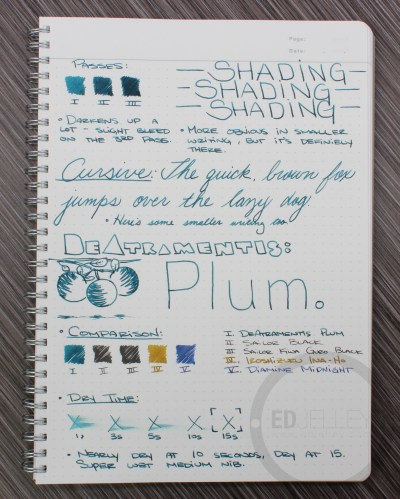 Page:
Date:
Passes:
I II III
— Shading —
— Shading —
— Shading —
• Darkens up a
lot - slight bleed
on the 3rd pass.
• More obvious in smaller
writing, but it's definiely
there.
Cursive: The quick, brown fox
jumps over the lazy dog.
• Here's some smaller writing too.
DeAtramentis:
Plum.
• Comparison:
I II III IV V
I. DeAtramentis Plum
II Sailor Black
III Sailor Kiwa Guro Black
IV Iroshizuku Ina-Ho
V. Diamine Midnight
• Dry Time:
X X X X X
1s 3s 5s 10s 15s
• Nearly dry at 10 seconds, dry at 15.
Super wet medium nib.
ED JELLEY